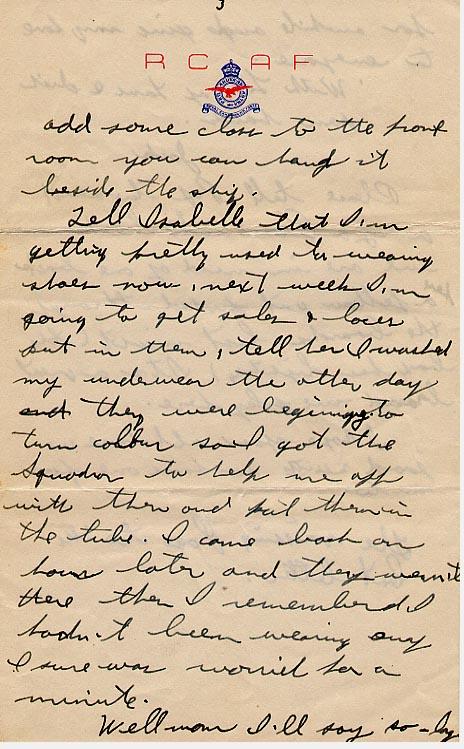 3
R C A F
add some class to the front
room you can hang it
beside the ship.
Tell Isabelle that I'm
getting pretty used to wearing
shoes now, next week I'm
going to get soles & laces
put in them, tell her I washed
my underwear the other day
and they were beginning to
turn colour so I got the
Squadron to help me off
with them and put them in
the tube. I came back an
hour later and they weren't
there then I rememberd I
hadn't been wearing any
I sure was worried for a
minute.
Well mom I'll say so-long